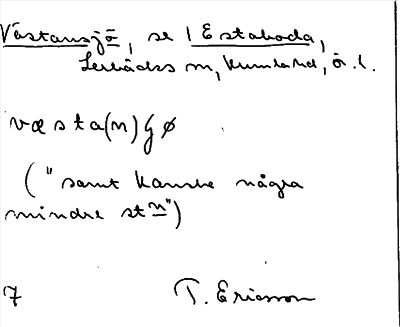 Västansjö, se 1 Estaboda,
Lerbäcks sn, Kumla hd, ö. l.
væsta(n)ʃø
(" samt kanske några
mindre st n")
7 T. Ericsson